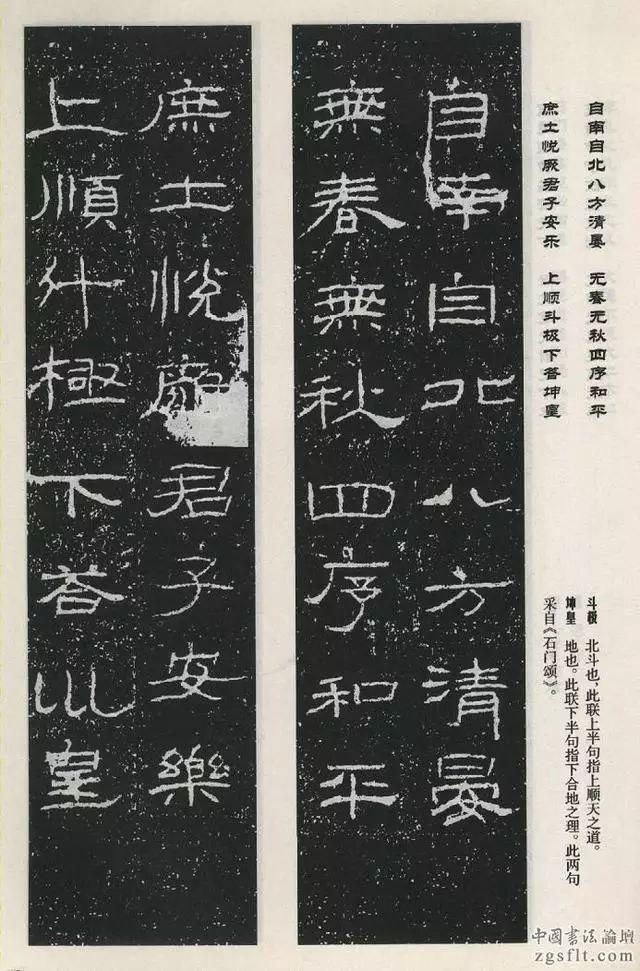 自南自北八方清晏 无春无秋四序和平
庶士悦厥君子安乐 上顺斗极下答坤皇
斗极 北斗也,此联上半句指上顺天之道。
坤皇 地也。此联下半句指下合地之理。此两句
采自《石门颂》。
自南自北八方清晏
無春無秋四序和平
庶士悅厥君子安樂
上順斗極下荅巛皇
中國書法論壇
zgsflt.com